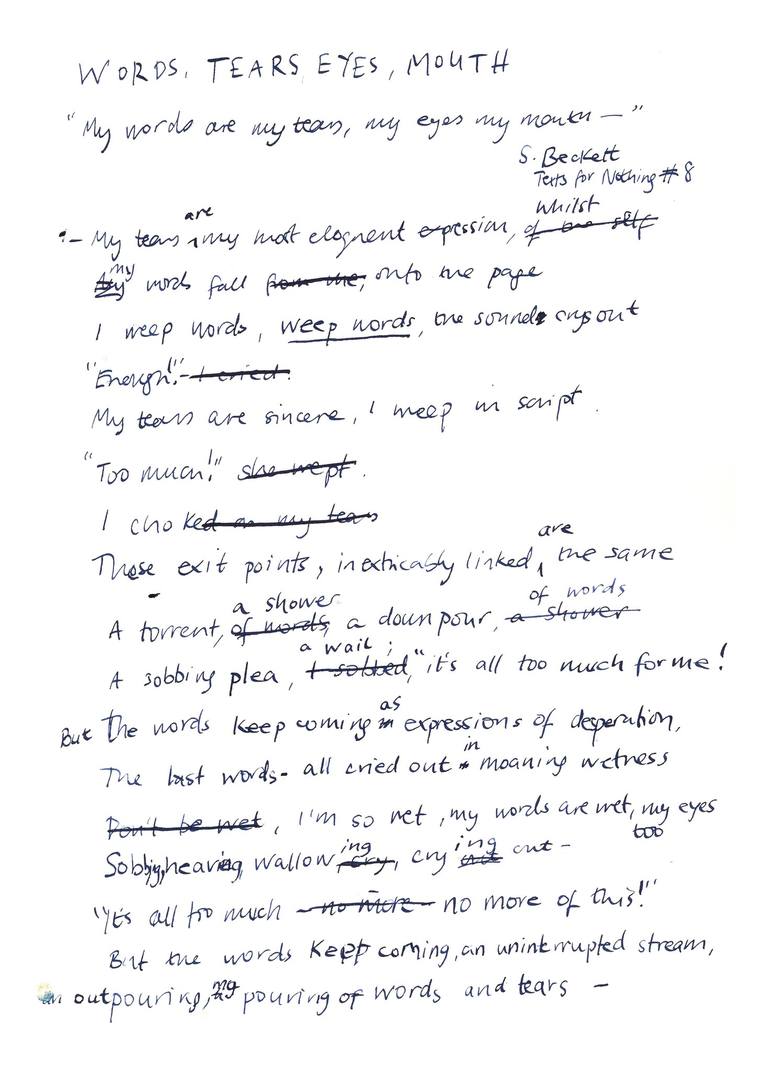 WORDS, TEARS, EYES, MOUTH
"My words are my tears, my eyes my mouth — "
S. Beckett
Texts for Nothing # 8
are
whilst
:- My tears my most eloquent expression, of the self
my
words fall from me, onto the page
I weep words, weep words, the sounds crys out
"Enough!"- I cried.
My tears are sincere, I weep in script.
"Too much!" she wept.
I choked on my tears
are
These exit points, inextricably linked, the same
a shower
of words
A torrent, of words, a downpour, a shower
a wail;
A sobbing plea, I sobbed, "it's all too much for me!
as
But the words keep coming in expressions of desperation,
in
The last words - all cried out moaning wetness
Don't be wet, I'm so wet, my words are wet, my eyes
too
ing
ing
Sobbing, heaving, wallow, cry, cry out -
"It's all too much - no more - no more of this!"
But the words keep coming, an uninterrupted stream,
an outpouring, pouring of words and tears -